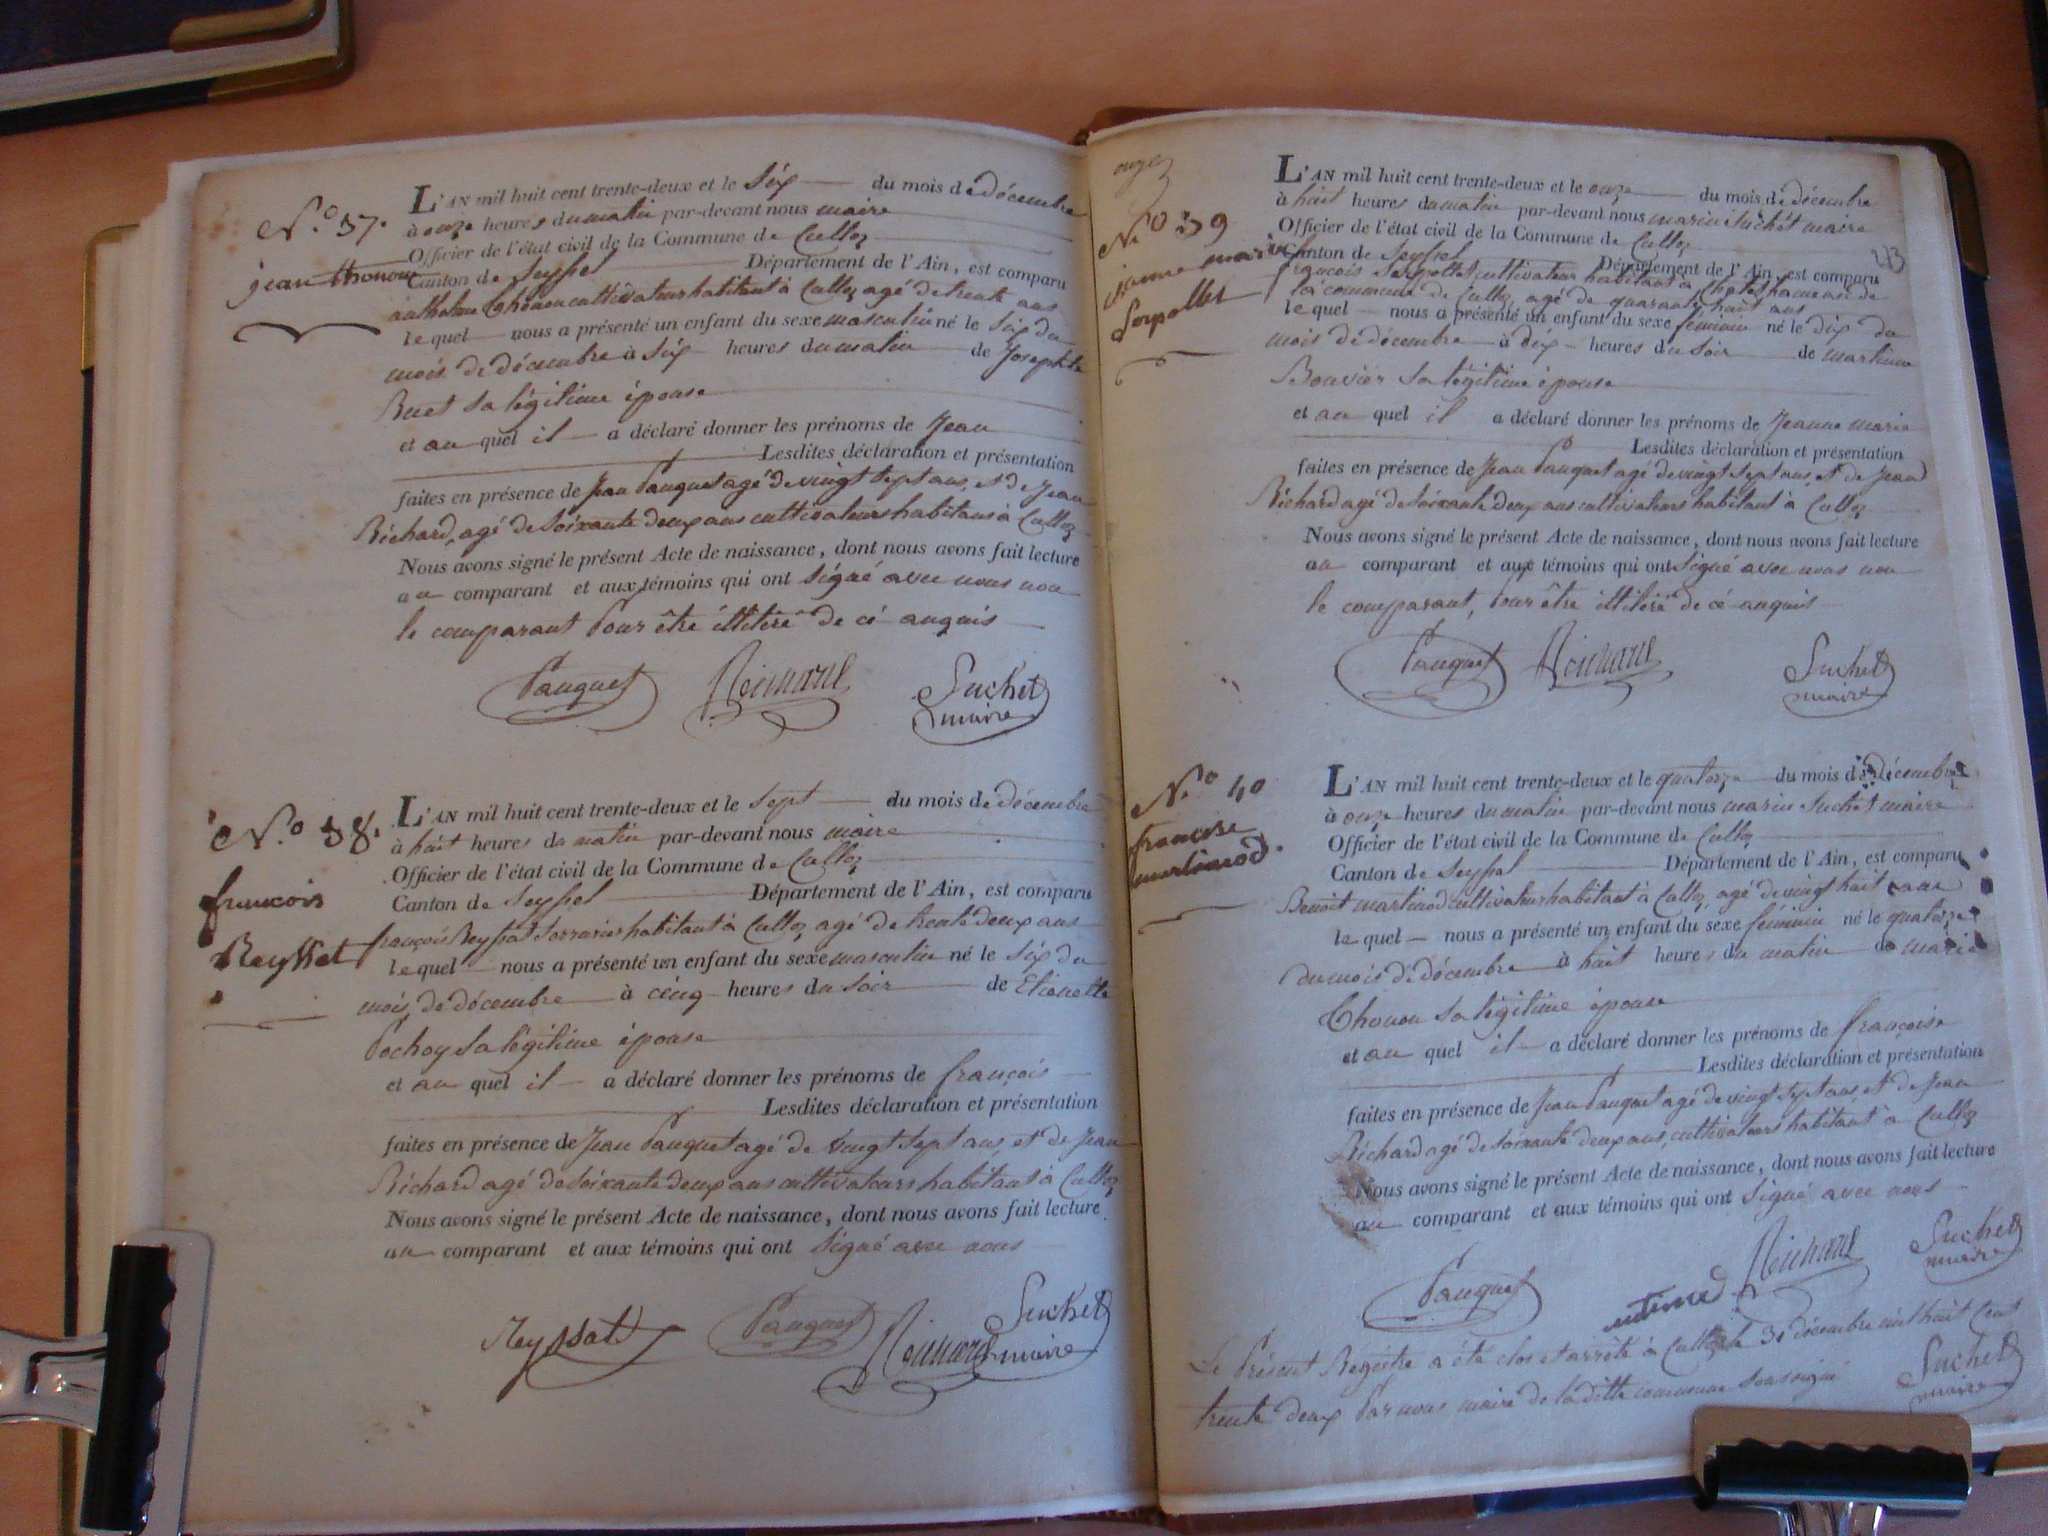 N.o 37.
jean thonon
L'AN mil huit cent trente-deux et le six du mois de décembre
à onze heures du matin par-devant nous maire
Officier de l'état civil de la Commune de Culloz
Canton de Seyssel Département de l'Ain, est comparu
anthelme Thonon cultivateur habitant à Culloz agé de trente ans
le quel nous a présenté un enfant du sexe masculin né le six du
mois de décembre à six heures du matin de Josephte
Buet sa légitime épouse
et au quel il a déclaré donner les prénoms de Jean
Lesdites déclaration et présentation
faites en présence de Jean Pauquet agé de vingt sept ans, et de Jean
Richard, agé de soixante deux ans cultivateurs habitans à Culloz
Nous avons signé le présent Acte de naissance, dont nous avons fait lecture
au comparant et aux témoins qui ont signé avec nous non
le comparant pour être illitéré de ce anquis
Pauquet Richard Suchet
maire
N.o 38.
francois
Reyssat
L'AN mil huit cent trente-deux et le sept du mois de décembre
à huit heures du matin par-devant nous maire
Officier de l'état civil de la Commune de Culloz
Canton de Seyssel Département de l'Ain, est comparu
françois Reyssat serrurier habitant à Culloz agé de trente deux ans
le quel nous a présenté un enfant du sexe masculin né le six du
mois de décembre à cinq heures du soir de Etienette
Pochoy sa légitime épouse
et au quel il a déclaré donner les prénoms de françois
Lesdites déclaration et présentation
faites en présence de Jean Pauquet agé de vingt sept ans, et de Jean
Richard agé de soixante deux ans cultivateurs habitans à Culloz
Nous avons signé le présent Acte de naissance, dont nous avons fait lecture
au comparant et aux témoins qui ont signé avec nous
Reyssat Pauquet Richard Suchet
maire
onze
N.o 39
jeanne marie
Serpollet
213
L'AN mil huit cent trente-deux et le onze du mois de décembre
à huit heures du matin par-devant nous marin Suchet maire
Officier de l'état civil de la Commune de Culloz
Canton de Seyssel Département de l'Ain, est comparu
françois Serpollet cultivateur habitant à Chatel hameau de
la commune de Culloz, agé de quarante huit ans
le quel nous a présenté un enfant du sexe féminin né le dix du
mois de décembre à dix heures du soir de martine
Bouvier sa légitime épouse
et au quel il a déclaré donner les prénoms de Jeanne marie
Lesdites déclaration et présentation
faites en présence de Jean Pauquet agé de vingt sept ans, et de Jean
Richard agé de soixante deux ans cultivateurs habitant à Culloz
Nous avons signé le présent Acte de naissance, dont nous avons fait lecture
au comparant et aux témoins qui ont signé avec nous non
le comparant, pour être illitéré de ce anquis
Pauquet Richard Suchet
maire
N.o 40
francoise
martinod.
L'AN mil huit cent trente-deux et le quatorze du mois de décembre
à onze heures du matin par-devant nous marin Suchet maire
Officier de l'état civil de la Commune de Culloz
Canton de Seyssel Département de l'Ain, est comparu
Benoit martinod cultivateur habitant à Culloz agé de vingt huit ans
le quel nous a présenté un enfant du sexe féminin né le quatorze
du mois de décembre à huit heures du matin de marie
Thonon sa légitime épouse
et au quel il a déclaré donner les prénoms de françoise
Lesdites déclaration et présentation
faites en présence de Jean Pauquet agé de vingt sept ans, et de Jean
Richard agé de soixante deux ans, cultivateurs habitant à Culloz
Nous avons signé le présent Acte de naissance, dont nous avons fait lecture
au comparant et aux témoins qui ont signé avec nous
Pauquet Richard Suchet
maire
Le Présent Régistre a été clos et arrêté à Culloz le 31 décembre mil huit cent
trente deux par nous maire de la ditte commune soussigné
Suchet
maire